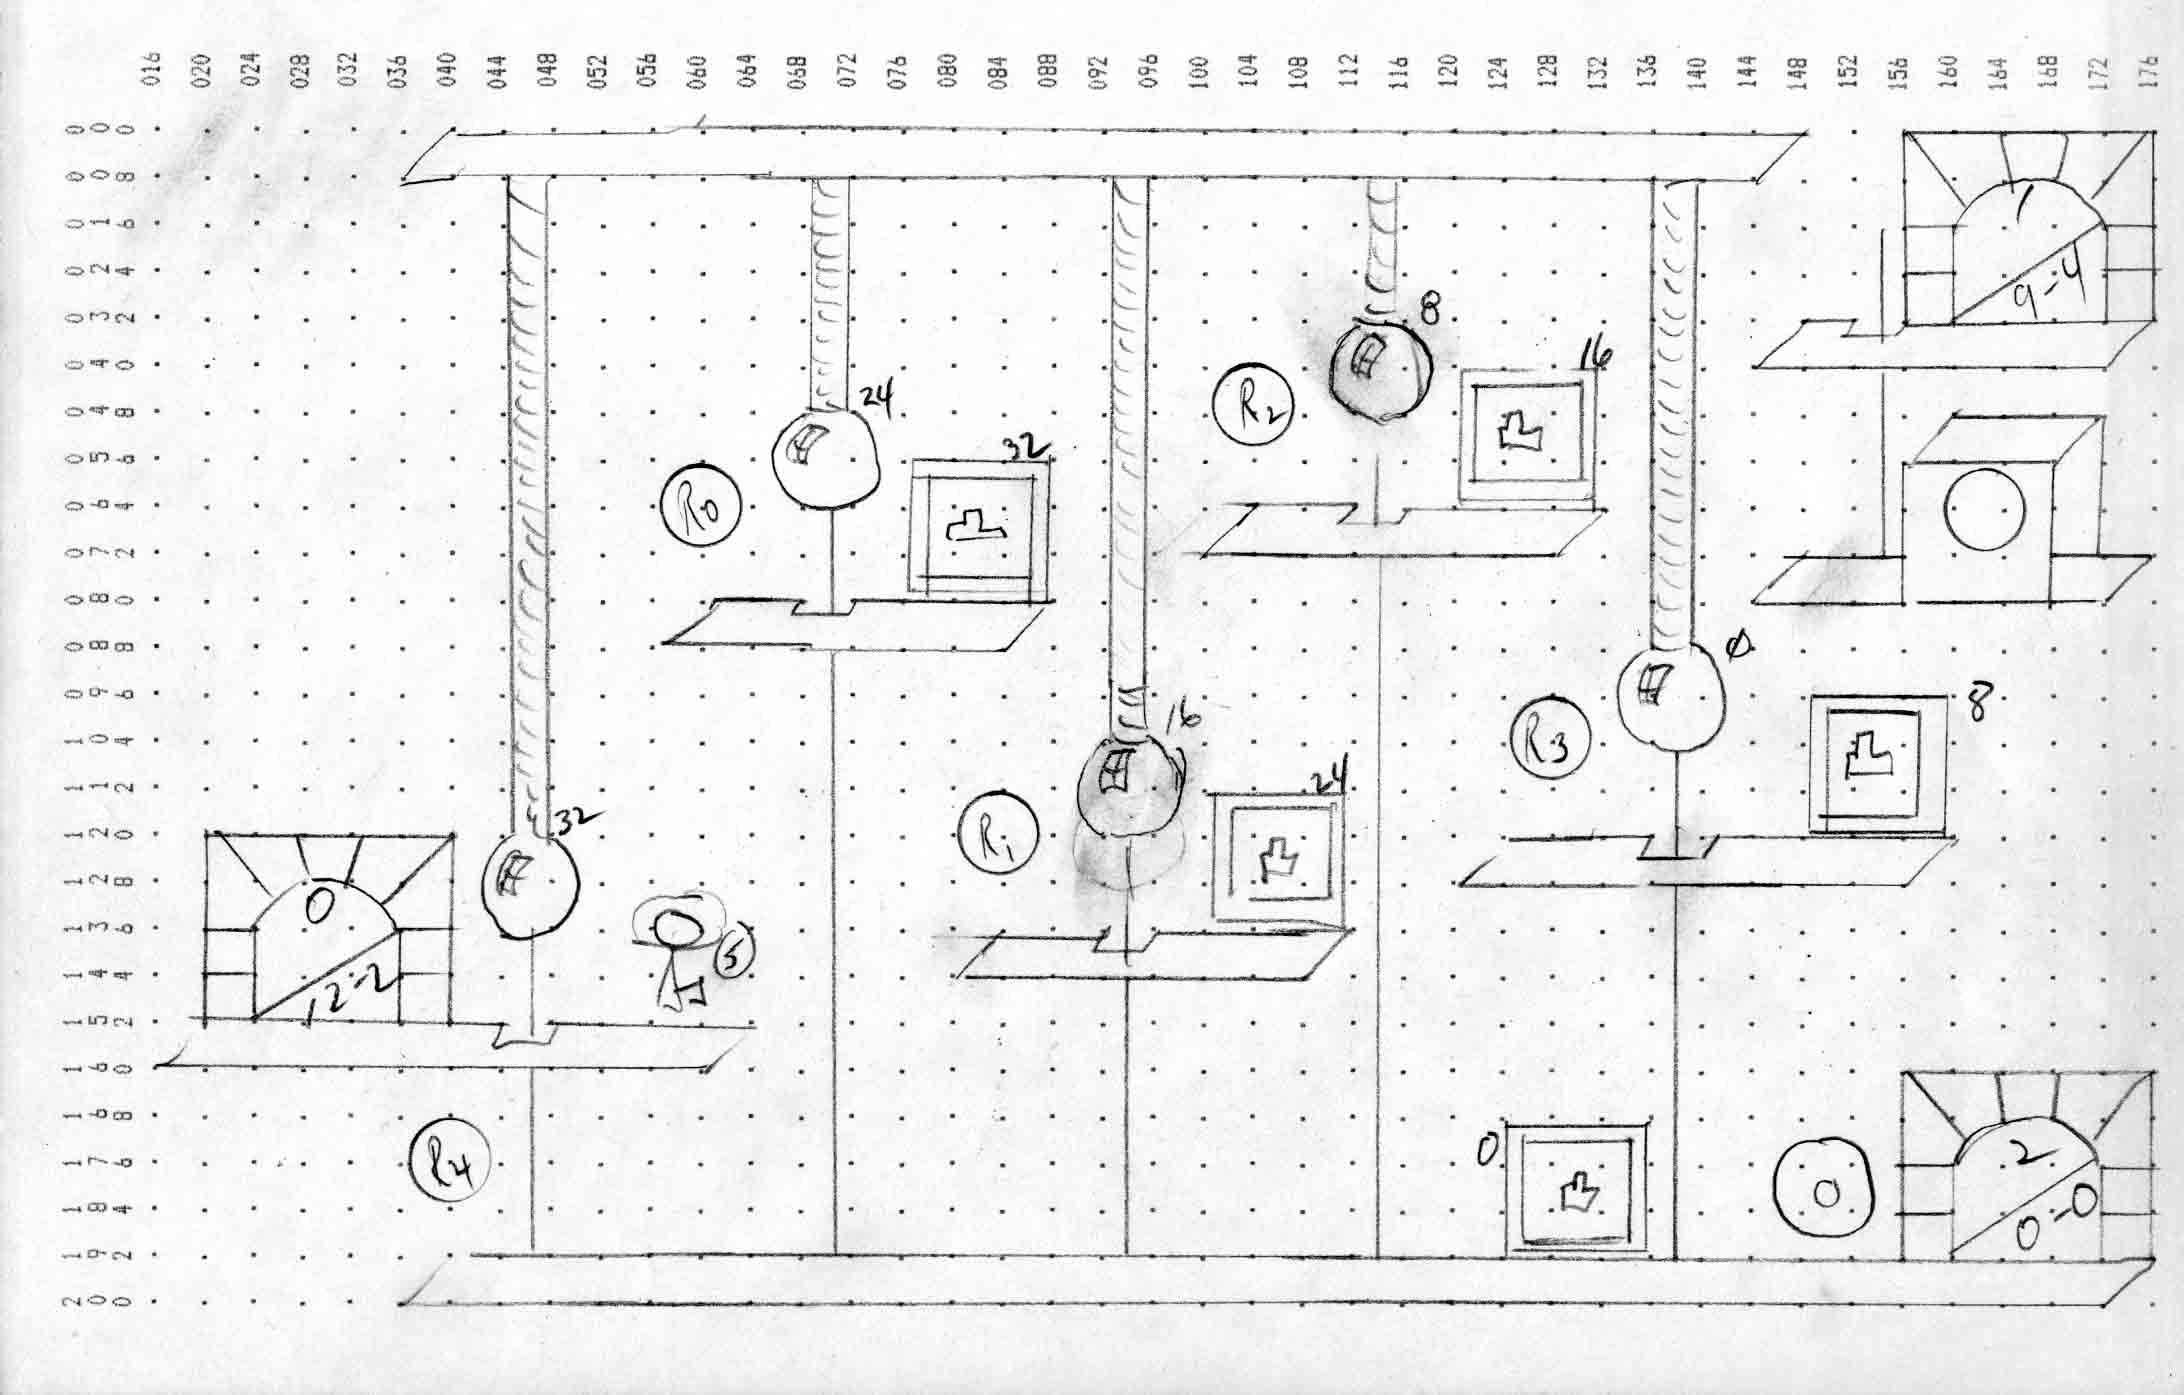 016 020 024 028 032 036 040 044 048 052 056 060 064 068 072 076 080 084 088 092 096 100 104 108 112 116 120 124 128 132 136 140 144 148 152 156 160 164 168 172 176
000
008
016
024
032
040
048
056
064
072
080
088
096
104
112
120
128
136
144
152
160
168
176
184
192
200
1
9-4
8
16
R2
24
32
R0
0
8
R3
16
24
R1
32
0
12-2
5
R4
0
0
2
0-0